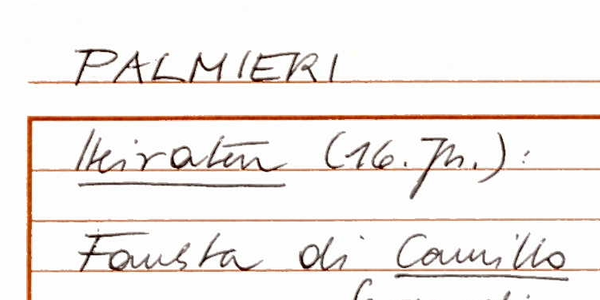 PALMIERI
Heiraten (16. Jh.):
Fausta di Camillo